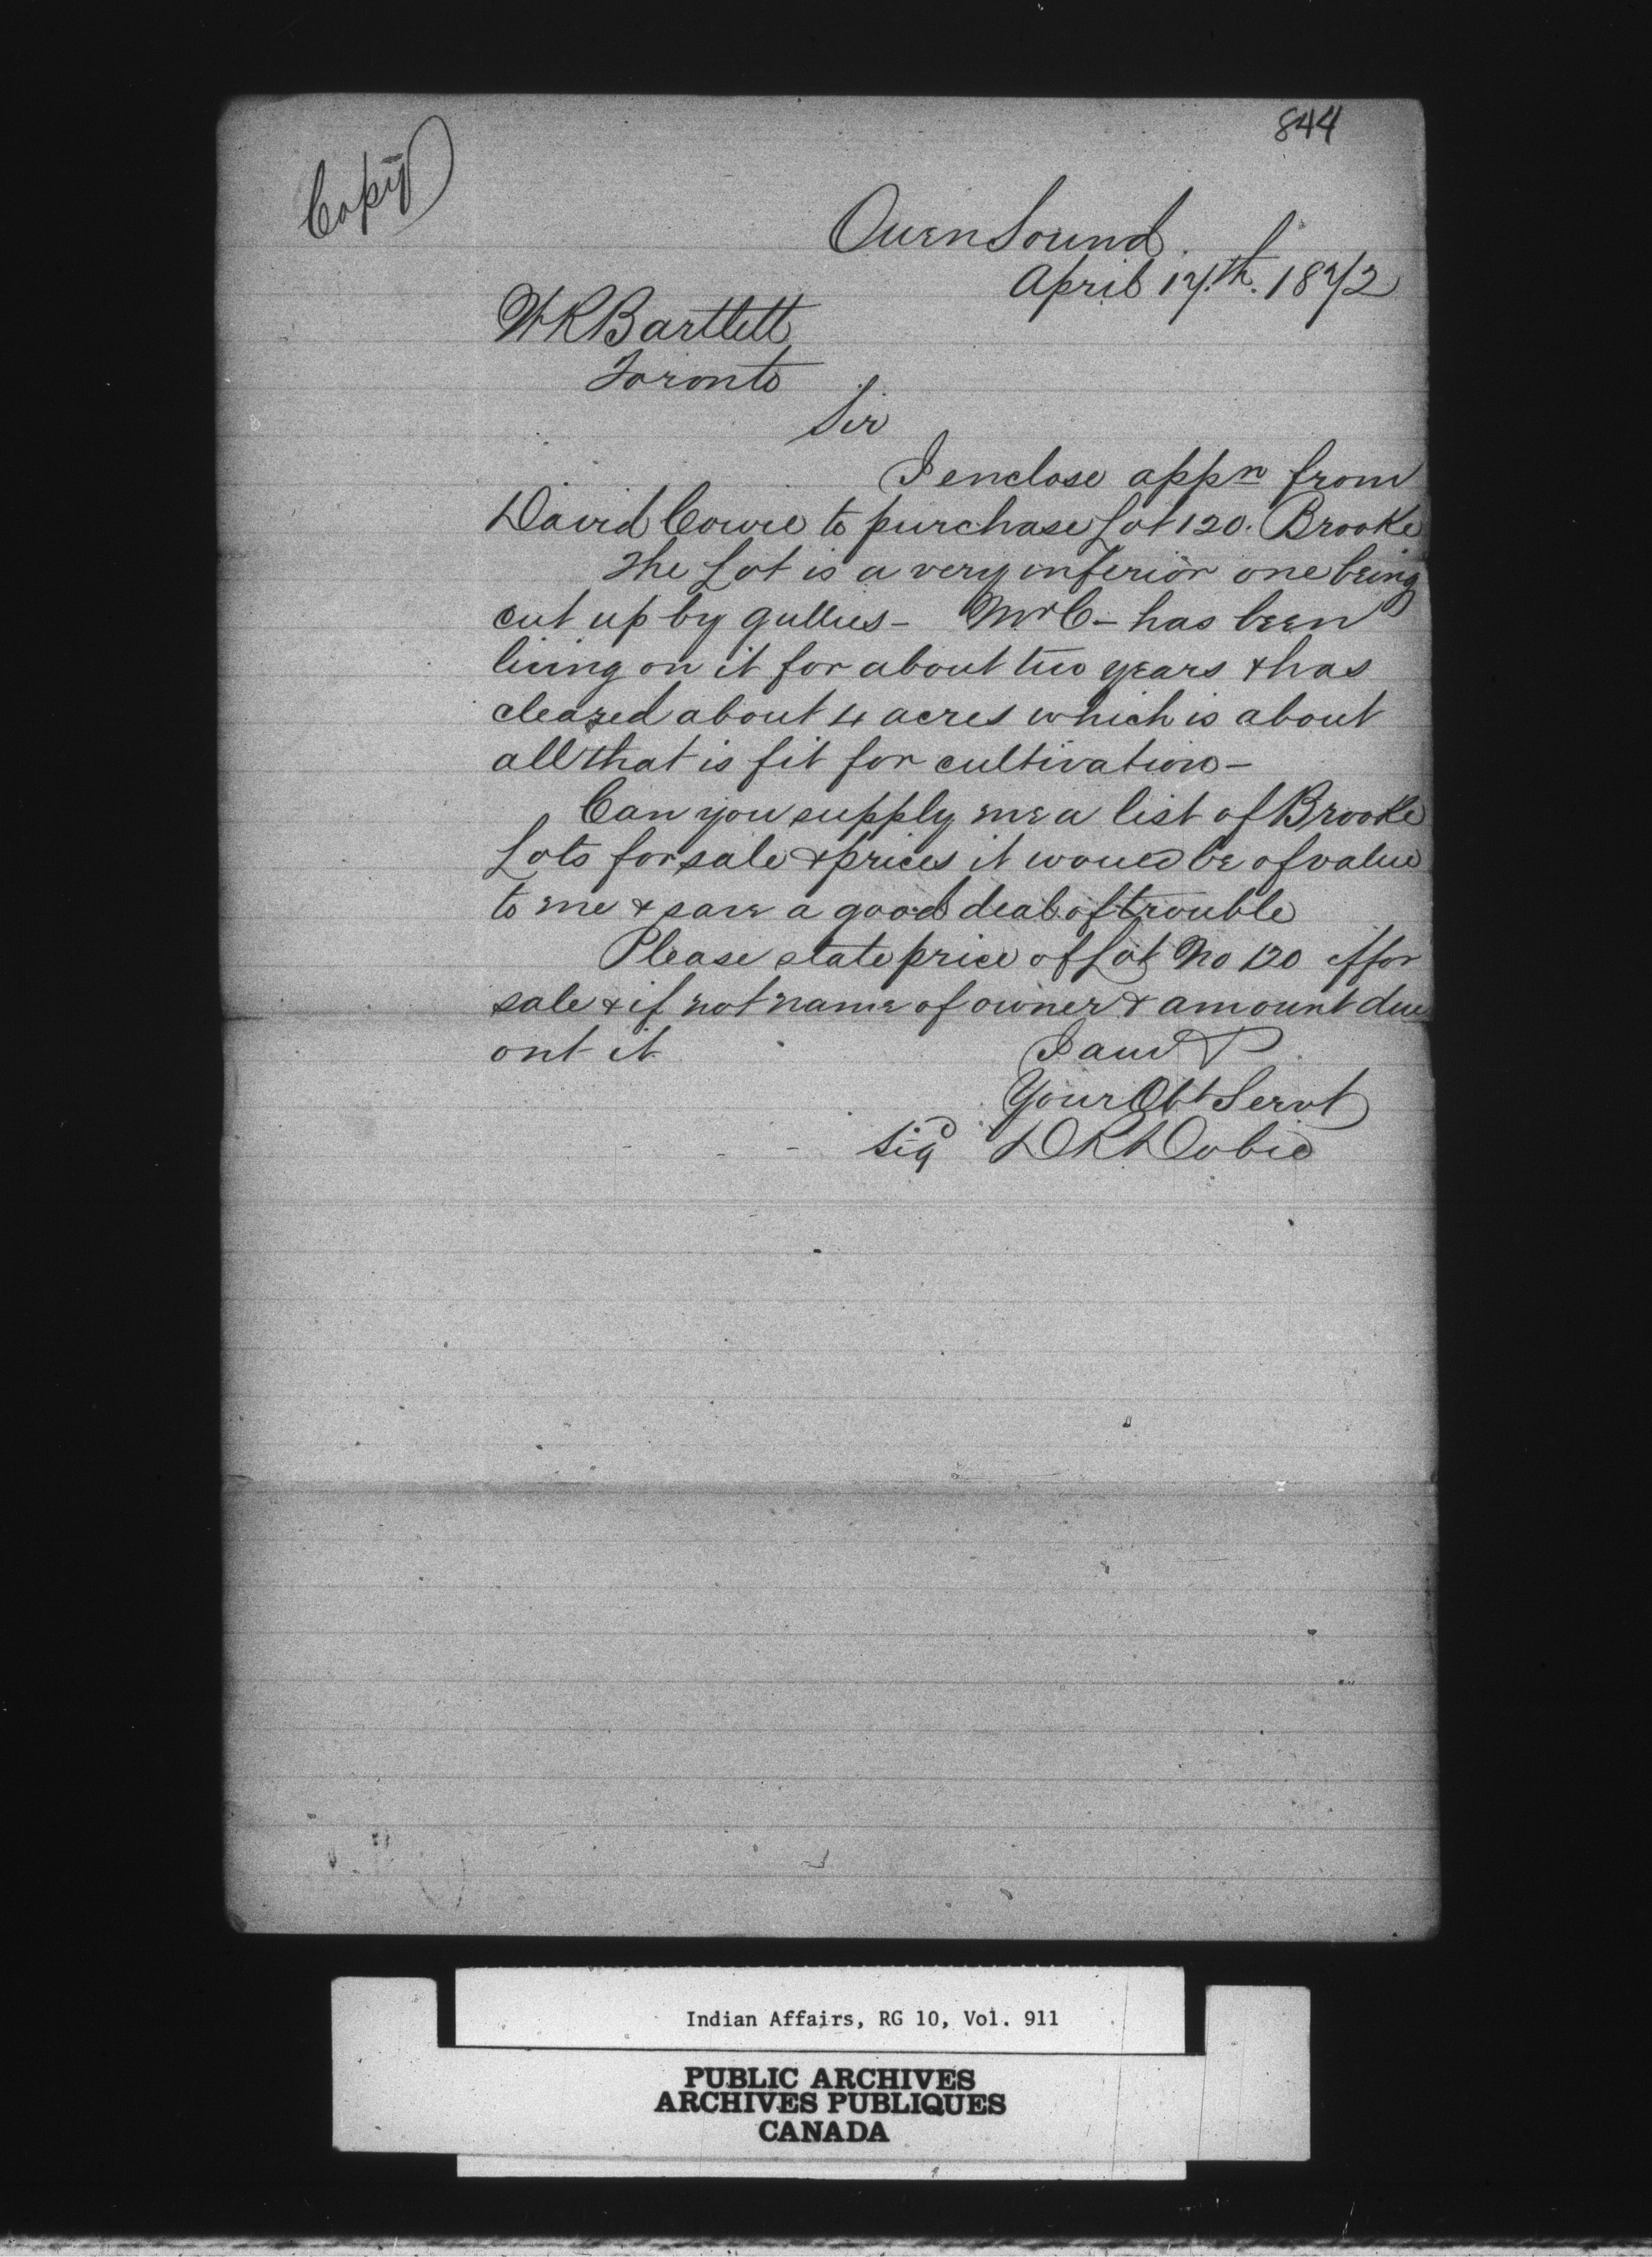 844
Copy
Owen Sound
April 17.th. 1872
W R Bartlett
Toronto
Sir
I enclose appn from
David Cowie to purchase Lot 120. Brooke
The Lot is a very inferior one being
cut up by gullies - Mr C - has been
living on it for about two years & has
cleared about 4 acres which is about
all that is fit for cultivation -
Can you supply me a list of Brooke
Lots for sale & prices it would be of value
to me & save a good deal of trouble
Please state price of Lot No 120 if for
sale & if not name of owner & amount due
ont it
I am &
Your Obt Servt
Sigd D R Dobie
Indian Affairs, RG 10, Vol. 911
PUBLIC ARCHIVES
ARCHIVES PUBLIQUES
CANADA